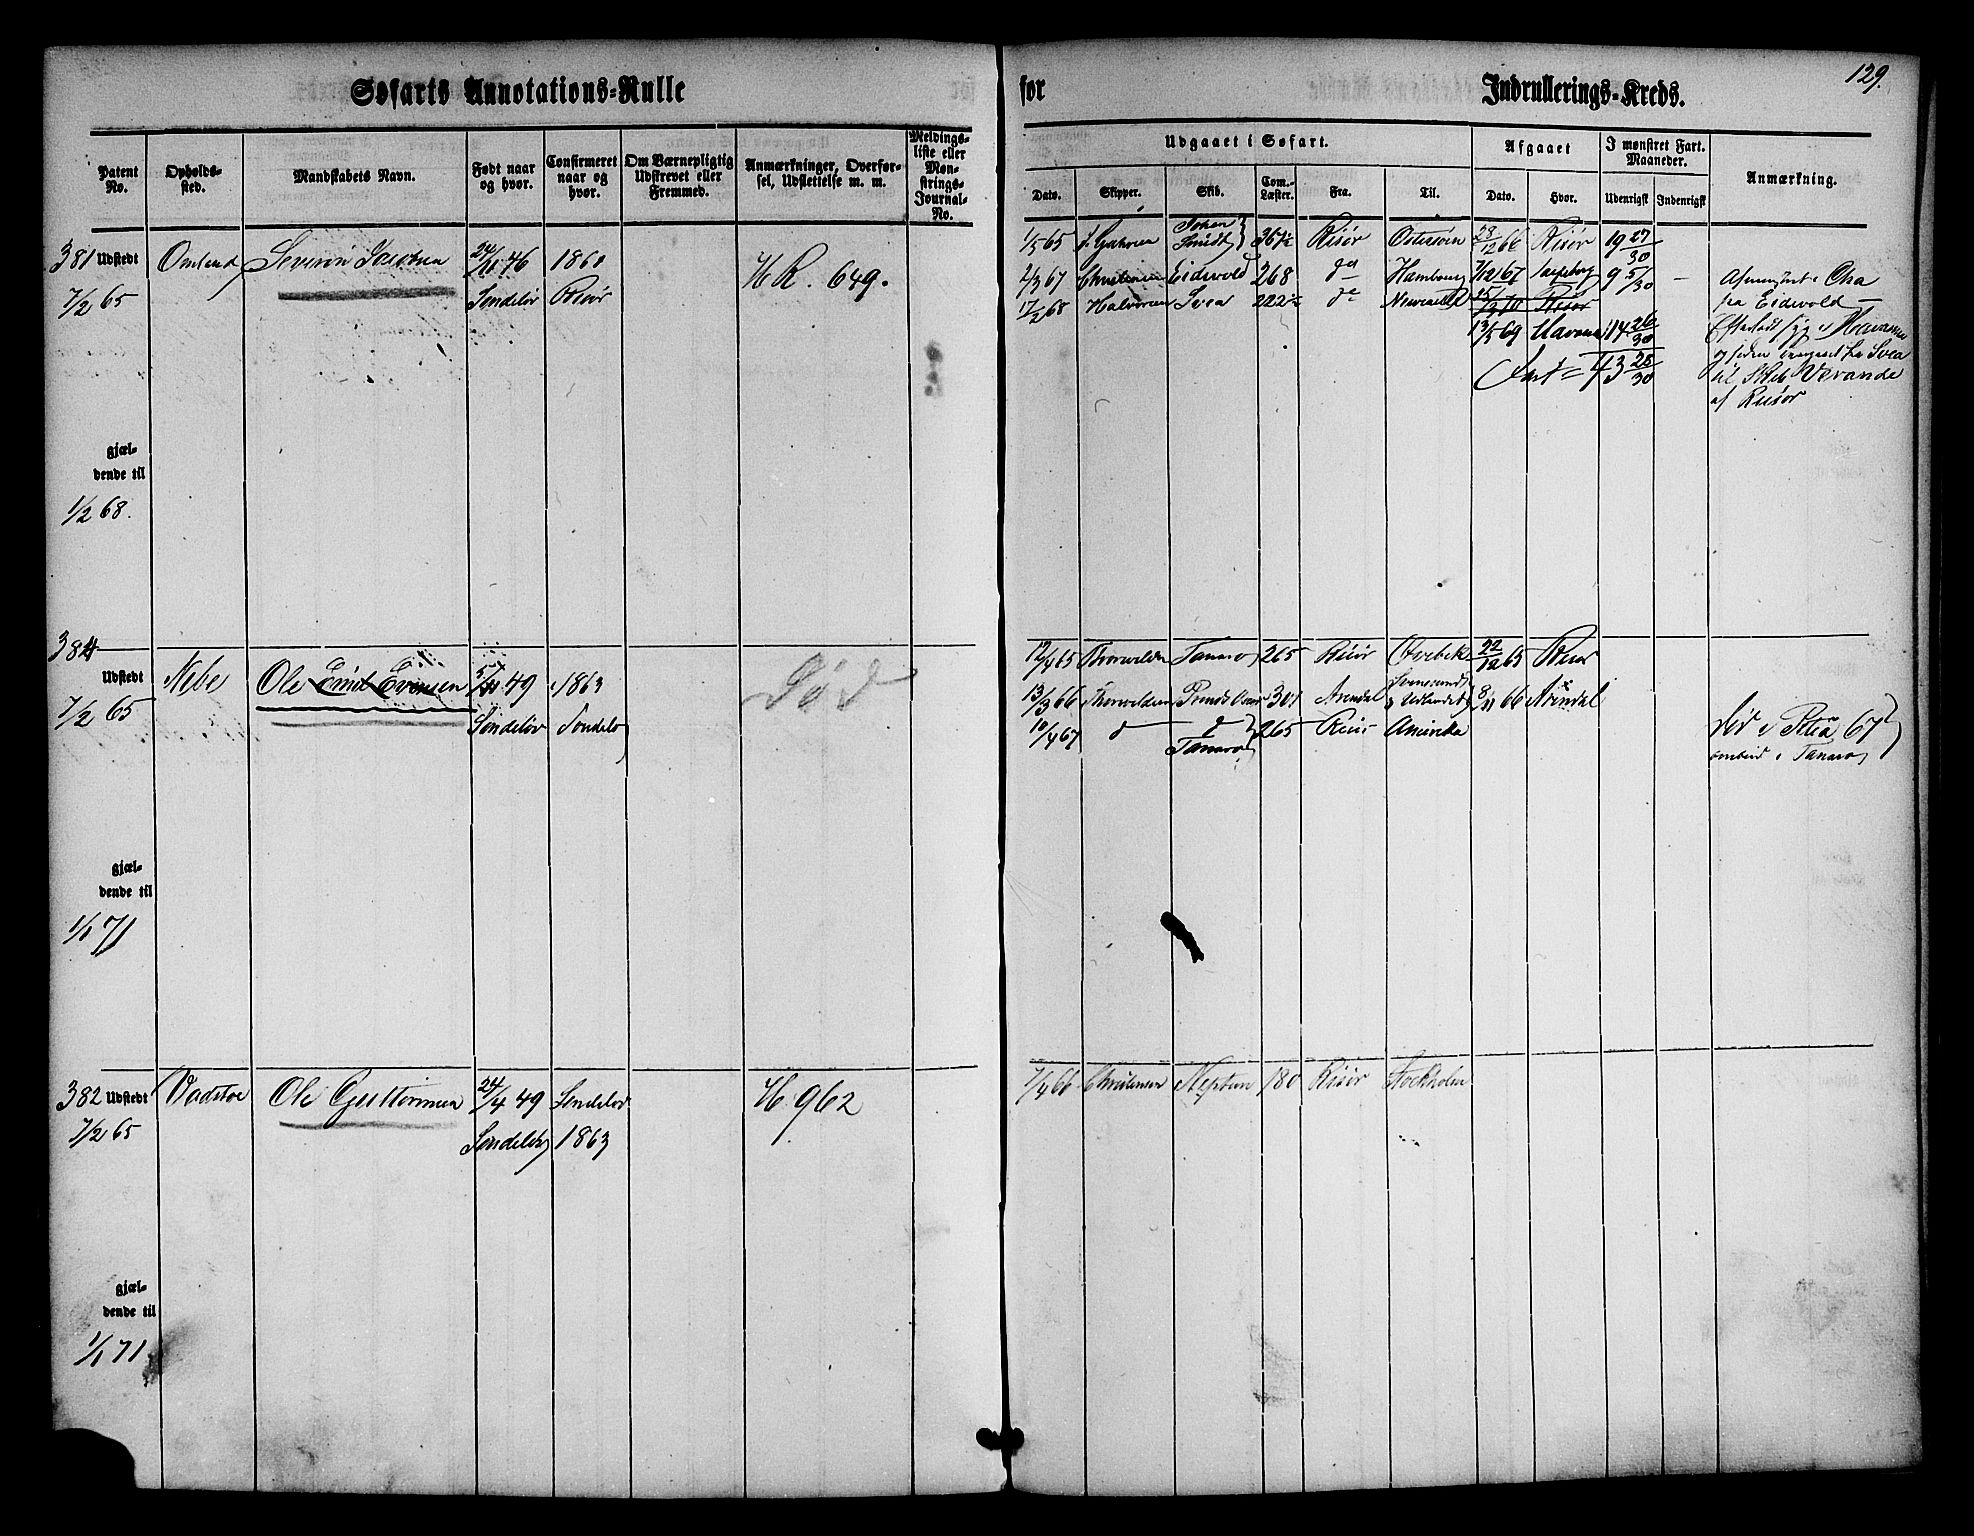 Søfarts Annotations-Rulle
for Indrullerings-Kreds.
129.
Patent No.
Opholds-sted.
Mandskabets Navn.
Født naar og hvor.
Confirmeret naar og hvor.
Om Værnepligtig Udskrevet eller Fremmed.
Anmærkninger, Overførsel, Udslettelse m. m.
Meldings-liste eller Mønstrings-Journal-No.
Udgaaet i Søfart.
Afgaaet
I mønstret Fart. Maaneder.
Anmærkning.
Dato. Skipper. Skib. Com.-Læster. Fra. Til. Dato. Hvor. Udenrigsk Indenrigsk
381 Udstedt Omland Severin Jacobsen 24/11 46 1860 HR. 649.
7/2 65 Søndeløv Risør
1/5 65 Johan Smidt 36 1/2 Risør Østersøen 28/12 66 Risør 19 27/30
2/3 67 Christensen Eidsvold 268 do Hambourg 7/12 67 9 5/30 —
17/2 68 Halvorsen Svea 222 1/2 do 25/3 70 Risør
13/5 69 Havana 14 26/30
Fart = 43 28/30
fra Eidsvold —
og siden fra Svea
til Skib Verande
af Risør
gjæl-
dende til
1/2 68.
384
Udstedt Nebe Ole Emil Evensen 5/11 49 1863 Død
7/2 65 Søndeløv Søndeløv
12/4 65 Thorvaldsen Tanaro 265 Risør 22/12 65 Risør
13/3 66 Thorvaldsen 301 Arendal Udlandet 8/11 66 Arendal
10/4 67 Tanaro 265 Risør Amerika
død i 67
ombord i Tanaro
gjæl-
dende til
1/1 71
382 Udstedt Vadstøe Ole Guttormsen 24/4 49 Søndeløv H. 962
7/2 65 Søndeløv 1863
7/4 66 Christensen Neptun 180 Risør Stockholm
gjæl-
dende til
1/1 71.